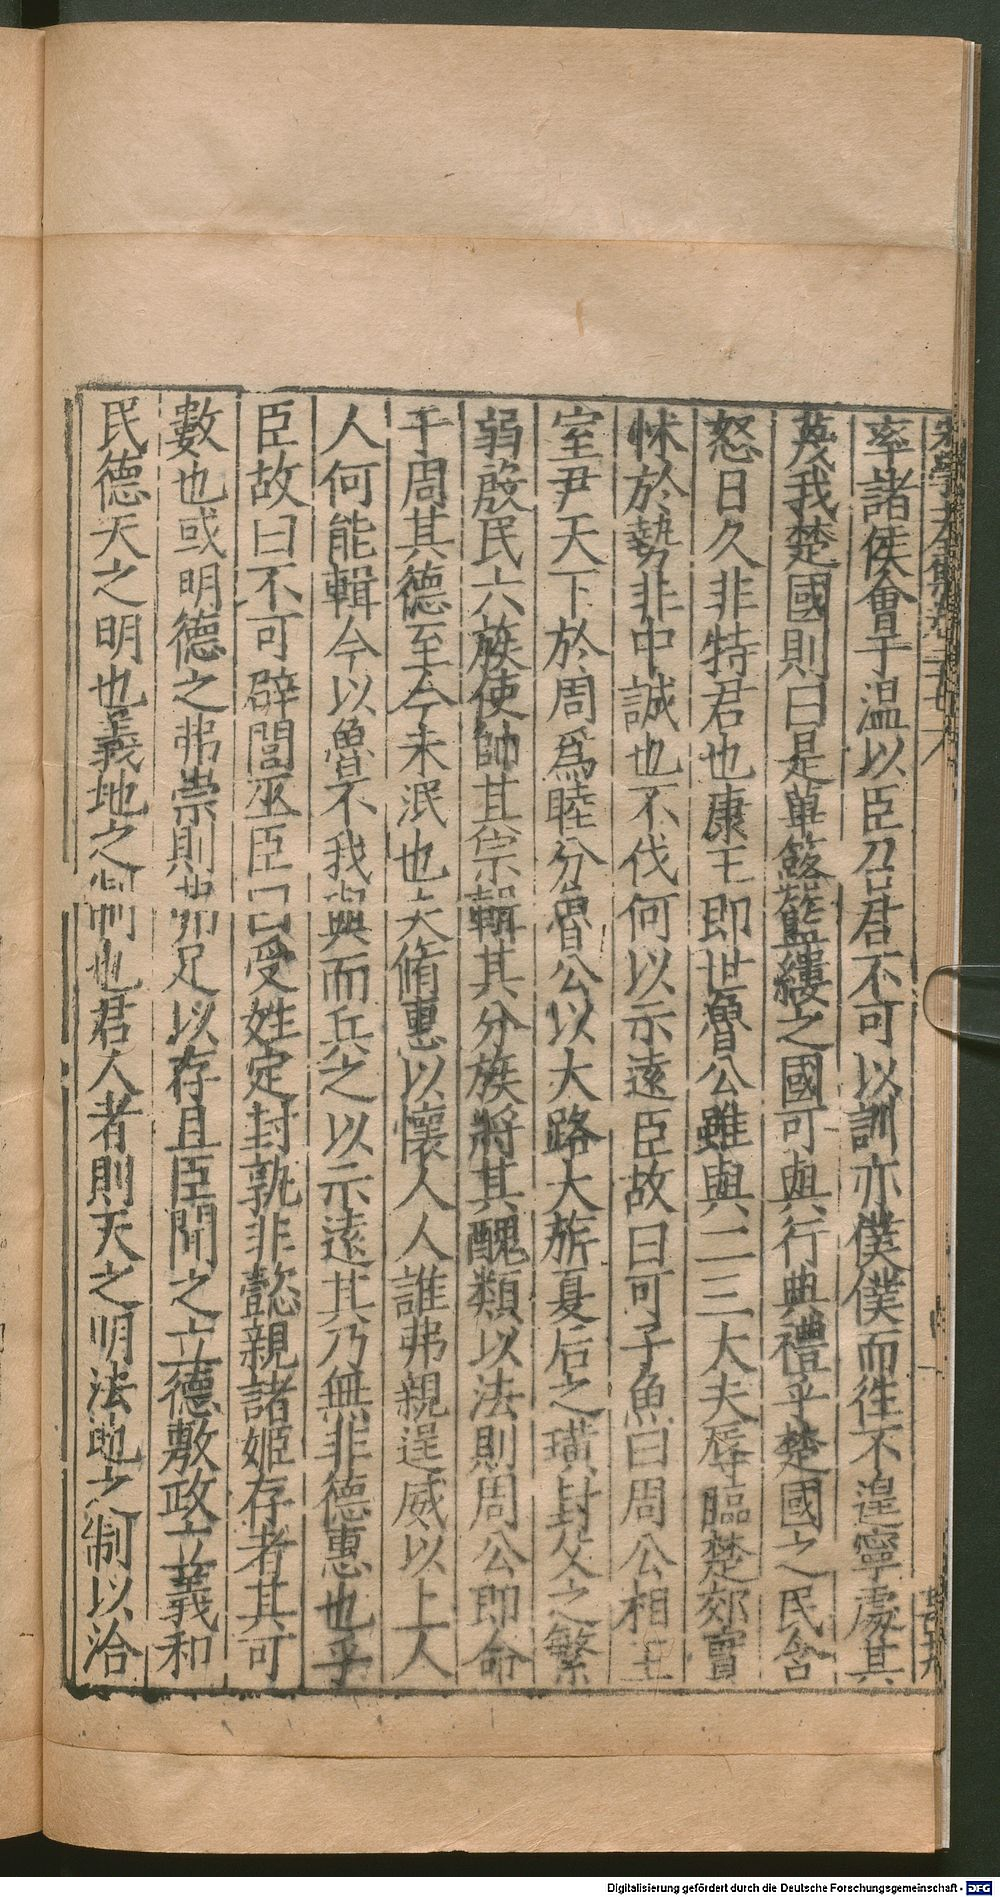 率諸侯會于温以臣召君不可以訓亦僕僕而往不遑寧處其
蔑我楚國則曰是蓽簬藍縷之國可與行典禮乎楚國之民含
怒日久非特君也康王即世魯公雖與二三大夫辱臨楚郊實
怵於勢非中誠也不伐何以示遠臣故曰可子魚曰周公相王
室尹天下於周爲睦分魯公以大路大旂夏后之璜封父之繁
弱殷民六族使帥其宗輯其分族將其醜類以法則周公即命
于周其德至今未泯也夫脩惠以懷人人誰弗親逞威以上人
人何能輯今以魯不我與而兵之以示遠其乃無非德惠也乎
臣故曰不可辟閭巫臣曰受姓定封孰非懿親諸姬存者其可
數也或明德之弗崇則茀足以存且臣聞之立德敷政立義和
民德天之明也義地之制也君人者則天之明法地之制以治
Digitalisierung gefördert durch die Deutsche Forschungsgemeinschaft - DFG